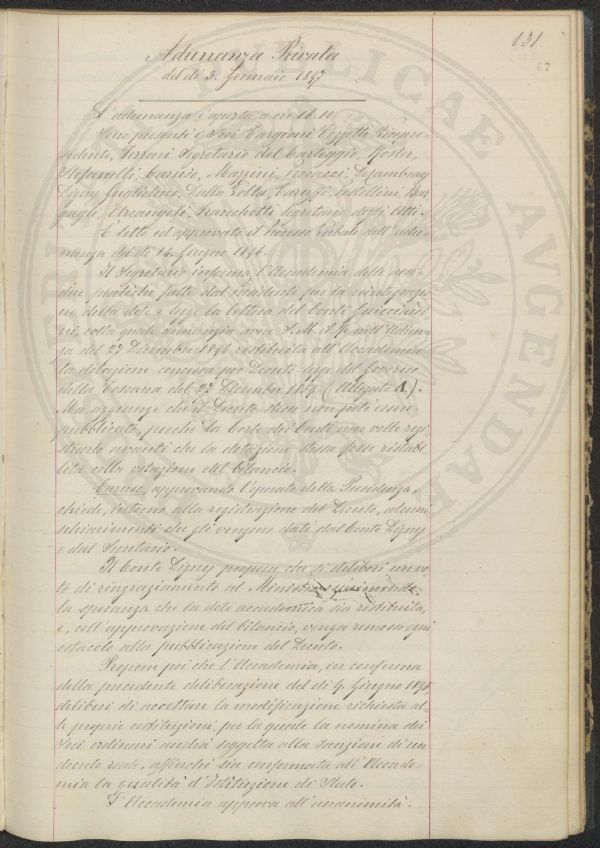 131
67
Adunanza Privata
del dì 3. Gennaio 1897
L'adunanza è aperta a ore 11.10
Sono presenti i Soci Cargiani Vice pre-
sidente, Ferrari Segretario del Carteggio,
Stefanelli, Caruso, Mazzini, Cambray
Digny, Guglielmo, Dalla Volta, Caruffi, Bar
gagli, Arcangeli, Franchetti Segretario degli Atti.
È letto ed approvato il Processo Verbale dell'adu-
nanza del dì 14 Giugno 1896.
Il Segretario informa l'Accademia delle assi-
due pratiche fatte dal Presidente per la reintegrazio-
ne della dote e legge la lettera del Conte Guicciardi
ni, colla quale annunzia aver S. M. il Re nell'Udien-
za del 27 Dicembre 1896 restituita all'Accademia
la dotazione concessa per Decreto legge del Governo
della Toscana del 27 Dicembre (Allegato A).
Ma aggiunge che il Decreto stesso non potè esser
pubblicato, perchè la Corte dei Conti non volle regi
strarlo avanti che la dotazione stessa fosse ristabi
lita colla votazione del bilancio.
Caruso, approvando l'operato della Presidenza,
chiede, intorno alla registrazione del Decreto, alcuni
schiarimenti che gli vengono dati dal Conte Digny
e dal Segretario.
Il Conte Digny propone che si deliberi un vo
to di ringraziamento al Ministro esprimendo
la speranza che la dote accademica sia restituita,
e, coll'approvazione del bilancio, venga rimosso ogni
ostacolo alla pubblicazione del Decreto.
Propone poi che l'Accademia, in conferma
della precedente deliberazione del dì 9. Giugno
deliberi di accettare la modificazione richiesta al
le proprie costituzioni, per la quale la nomina dei
Soci ordinari andrà soggetta alla sanzione di un
decreto reale, affinchè sia confermata all'Accade-
mia la qualità d'Istituzione di Stato.
L'Accademia approva all'unanimità.